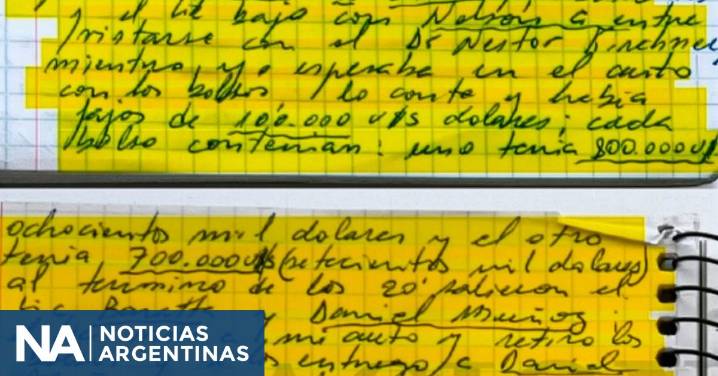 el Lic bajo con Nelson a entre
vistarse con el Dr Nestor Kirchner
mientras yo esperaba en el auto
con los bolsos lo conte y habia
fajos de 100.000 u$s dolares; cada
bolso contenian: uno tenia 800.000 u$s
ochocientos mil dolares y el otro
tenia 700.000 u$s (setecientos mil dolares)
al termino de los 20' salieron el
Lic Baratta y Daniel Muñoz
mi auto y retiro los
entrego a Daniel
NA NOTICIAS
ARGENTINAS